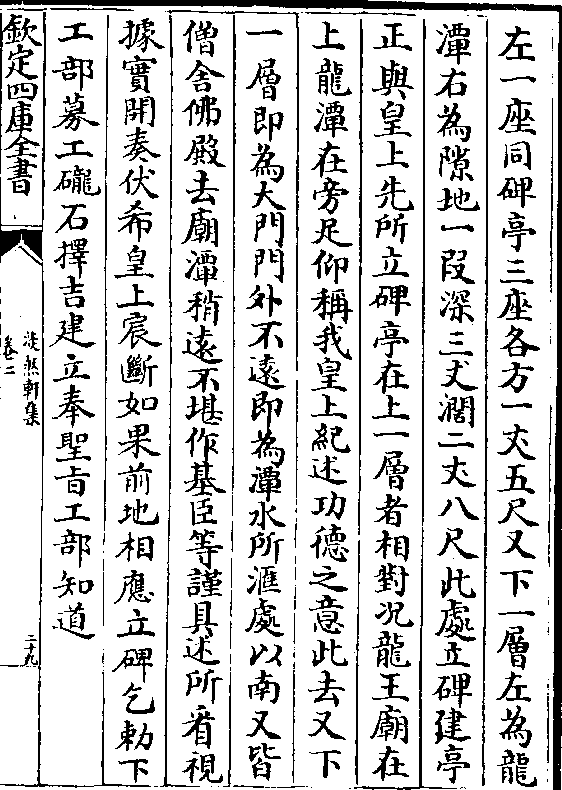 左一座同碑亭三座各方一丈五尺又下一層左為龍
潭右為隙地一段深三丈濶二丈八尺此處立碑建亭
正與皇上先所立碑亭在上一層者相對况龍王廟在
上龍潭在旁足仰稱我皇上紀述功德之意此去又下
一層即為大門門外不逺即為潭水所滙處以南又皆
僧舍佛殿去廟潭稍逺不堪作基臣等謹具述所看視
據實開奏伏希皇上宸斷如果前地相應立碑乞勅下
工部募工礲石擇吉建立奉聖旨工部知道
欽定四庫全書
淡然軒集
卷二
二十九